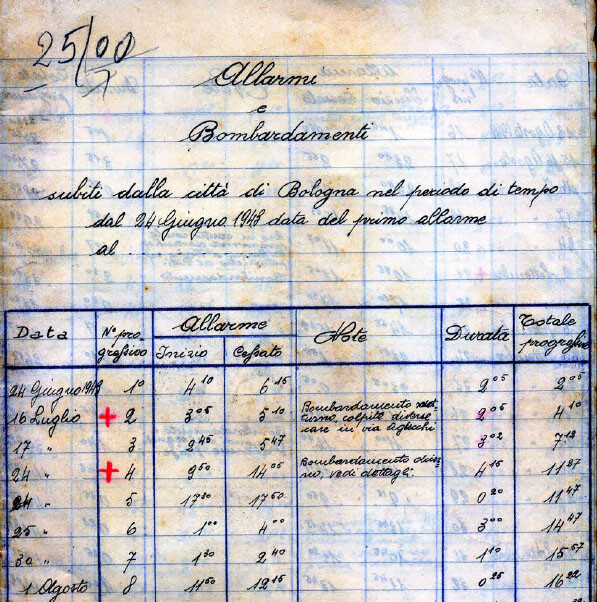 25/00
Allarmi
e
Bombardamenti
subiti dalla città di Bologna nel periodo di tempo
dal 24 Giugno 1943 data del primo allarme
al . . . . . . . . . .
Data N° pro-gressivo Allarme Inizio Cessato Note Durata Totale progressivo
24 Giugno 1943 1° 4 10 6 15 2 05 2 05
16 Luglio + 2 3 05 5 10 Bombardamento not-turno, colpite diverse case in via Agucchi 2 05 4 10
17 " 3 2 45 5 47 3 02 7 12
24 " + 4 9 50 14 05 Bombardamento diur-no, vedi dettagli. 4 15 11 27
24 " 5 17 30 17 50 0 20 11 47
25 " 6 1 00 4 00 3 00 14 47
30 " 7 1 30 2 40 1 10 15 57
1 Agosto 8 11 50 12 15 0 25 16 22